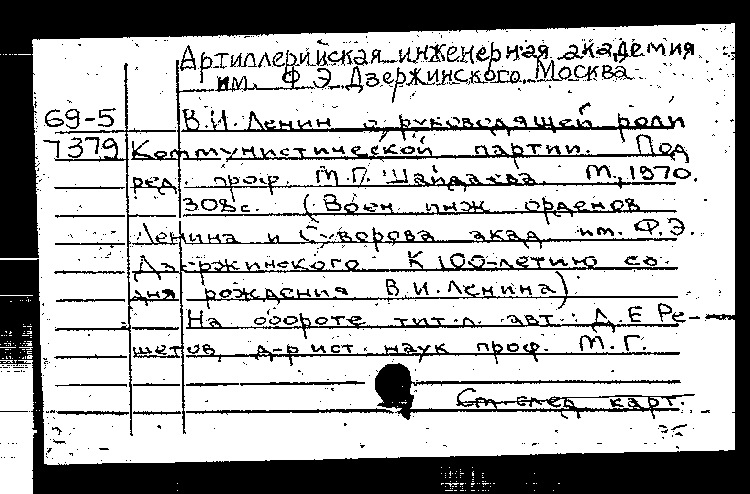 Артиллерийская инженерная академия
им. Ф Э Дзержинского. Москва
69-5 В.И. Ленин о руководящей роли
7379 Коммунистической партии. Под
ред. проф. М.Г. М., 1970.
308с. (Воен инж орденов
Ленина и Суворова акад им. Ф.Э.
Дзержинского К 100-летию со
дня рождения В.И. Ленина)
На обороте тит. л. авт.: Д.Е Ре-
шетов, д-р ист. наук проф. М.Г.
См. след карт.